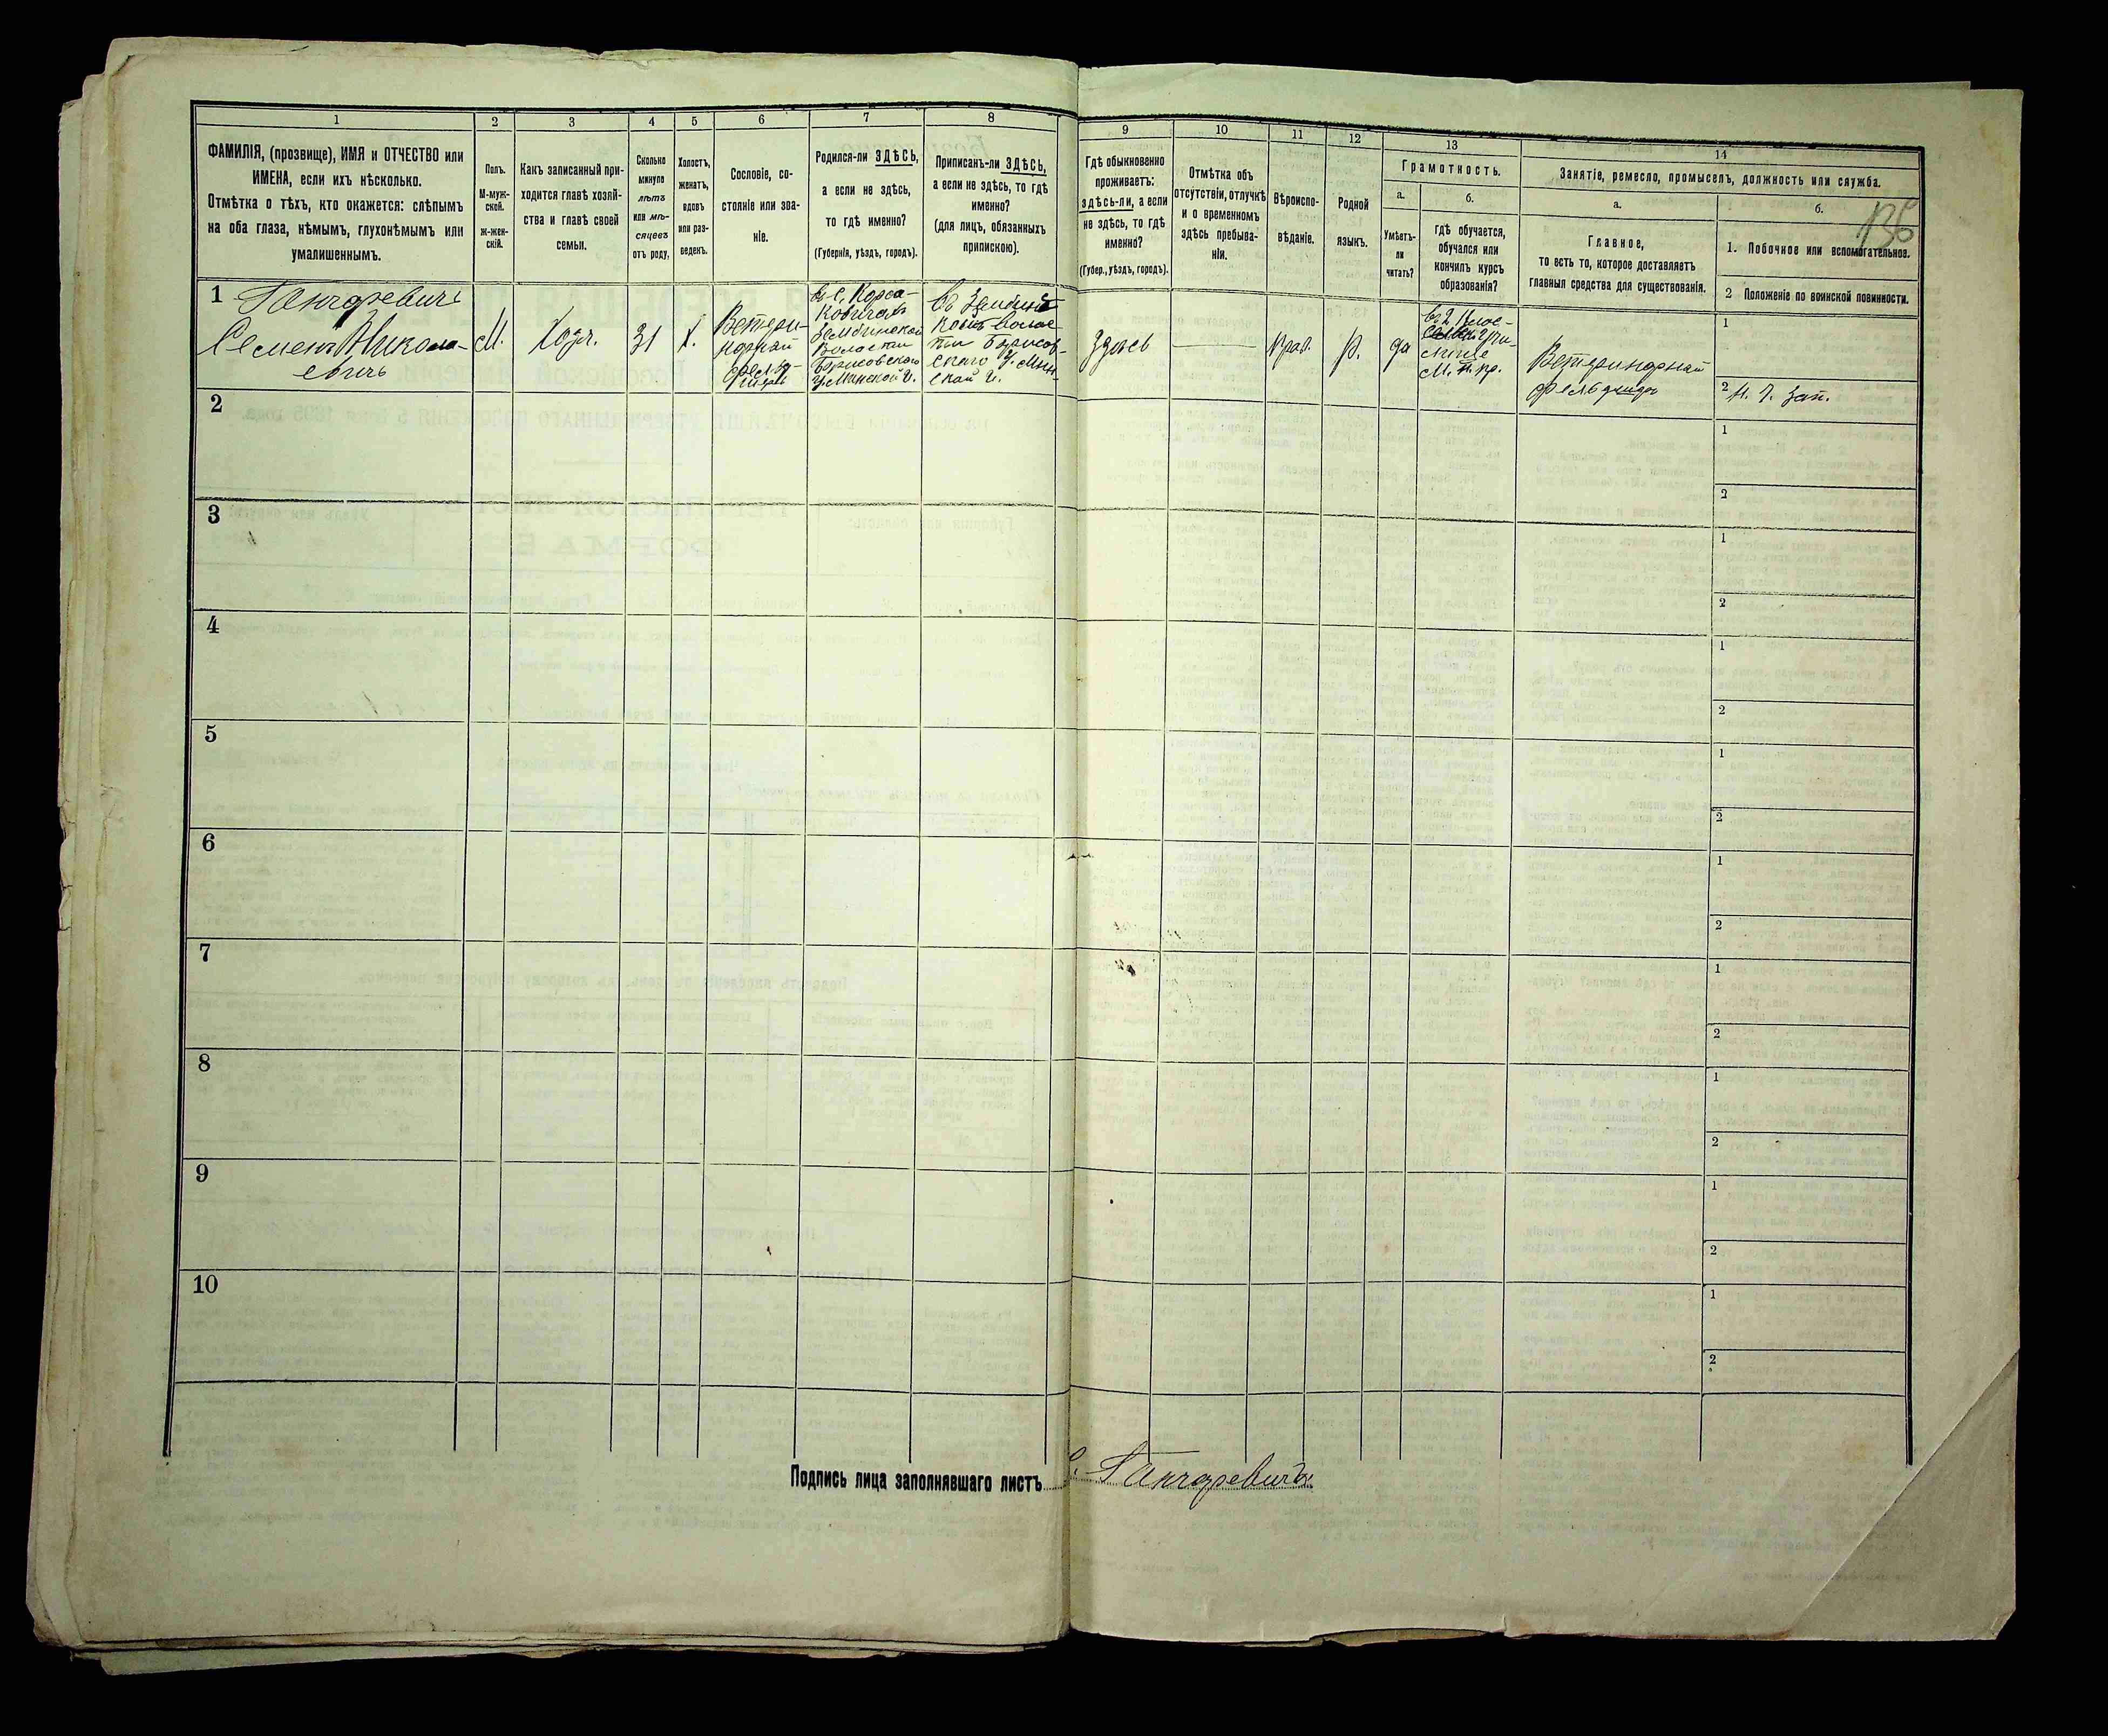 1
2
3
4
5
6
7
8
9
10
11
12
13
14
ФАМИЛІЯ, (прозвище), ИМЯ и ОТЧЕСТВО или
ИМЕНА, если ихъ нѣсколько.
Отмѣтка о тѣхъ, кто окажется: слѣпымъ
на оба глаза, нѣмымъ, глухонѣмымъ или
умалишеннымъ.
Полъ.
М-муж-
ской.
Ж-жен-
скій.
Какъ записанный при-
ходится главѣ хозяй-
ства и главѣ своей
семьи.
Сколько
минуло
лѣтъ
или мѣ-
сяцевъ
отъ роду.
Холостъ,
женатъ,
вдовъ
или раз-
веденъ.
Сословіе, со-
стояніе или зва-
ніе.
Родился-ли ЗДѢСЬ,
а если не здѣсь,
то гдѣ именно?
(Губернія, уѣздъ, городъ).
Приписанъ-ли ЗДѢСЬ,
а если не здѣсь, то гдѣ
именно?
(для лицъ, обязанныхъ
припискою).
Гдѣ обыкновенно
проживаетъ:
здѣсь-ли, а если
не здѣсь, то гдѣ
именно?
(Губер., уѣздъ, городъ).
Отмѣтка объ
отсутствіи, отлучкѣ
и о временномъ
здѣсь пребыва-
ніи.
Вѣроиспо-
вѣданіе.
Родной
языкъ.
Грамотность.
а.
Умѣетъ-
ли
читать?
б.
гдѣ обучается,
обучался или
кончилъ курсъ
образованія?
Занятіе, ремесло, промыселъ, должность или служба.
а.
Главное,
то есть то, которое доставляетъ
главныя средства для существованія.
б.
136
1. Побочное или вспомогательное.
2 Положеніе по воинской повинности.
1
Ганчаревичъ
Семенъ Никола-
евичъ
М.
Хозя.
31
Х.
Ветери-
нарный
фельд-
шеръ
въ с. Корса-
ковичахъ
Зембинской
Волости
Борисовскаго
У. Минской Г.
Въ Зембинс
кой Волос
ти Борисов-
скаго У. Мин-
ской Г.
Здѣсь
Прав.
Р.
да
Ветеринарный
фельдшеръ
1
2
2
1
2
3
1
2
4
1
2
5
1
2
6
1
2
7
1
2
8
1
2
9
1
2
10
1
2
Подпись лица заполнявшаго листъ
С. Ганчаревичъ